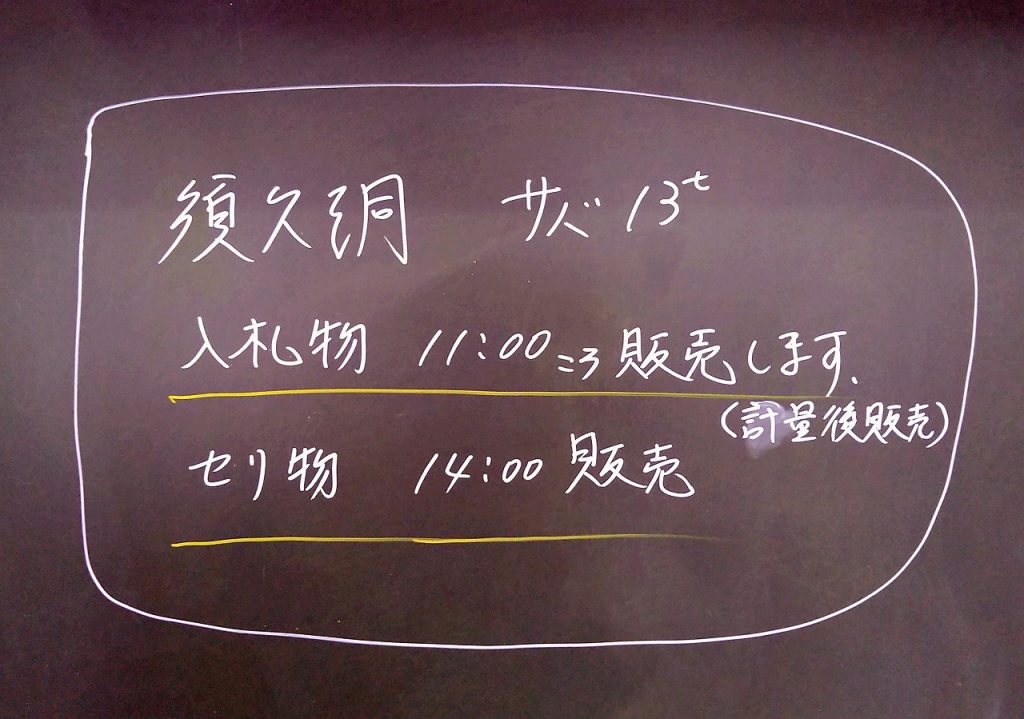 須久洞 サバ 13t
入札物 11:00ころ販売します、
(計量後販売)
セリ物 14:00 販売